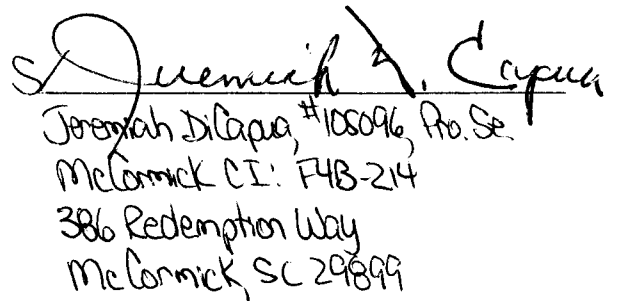 s/ Jeremiah D. Capua
Jeremiah DiCapua, #105096, Pro. Se.
McCormick CI: F4B-214
386 Redemption Way
McCormick, SC 29899